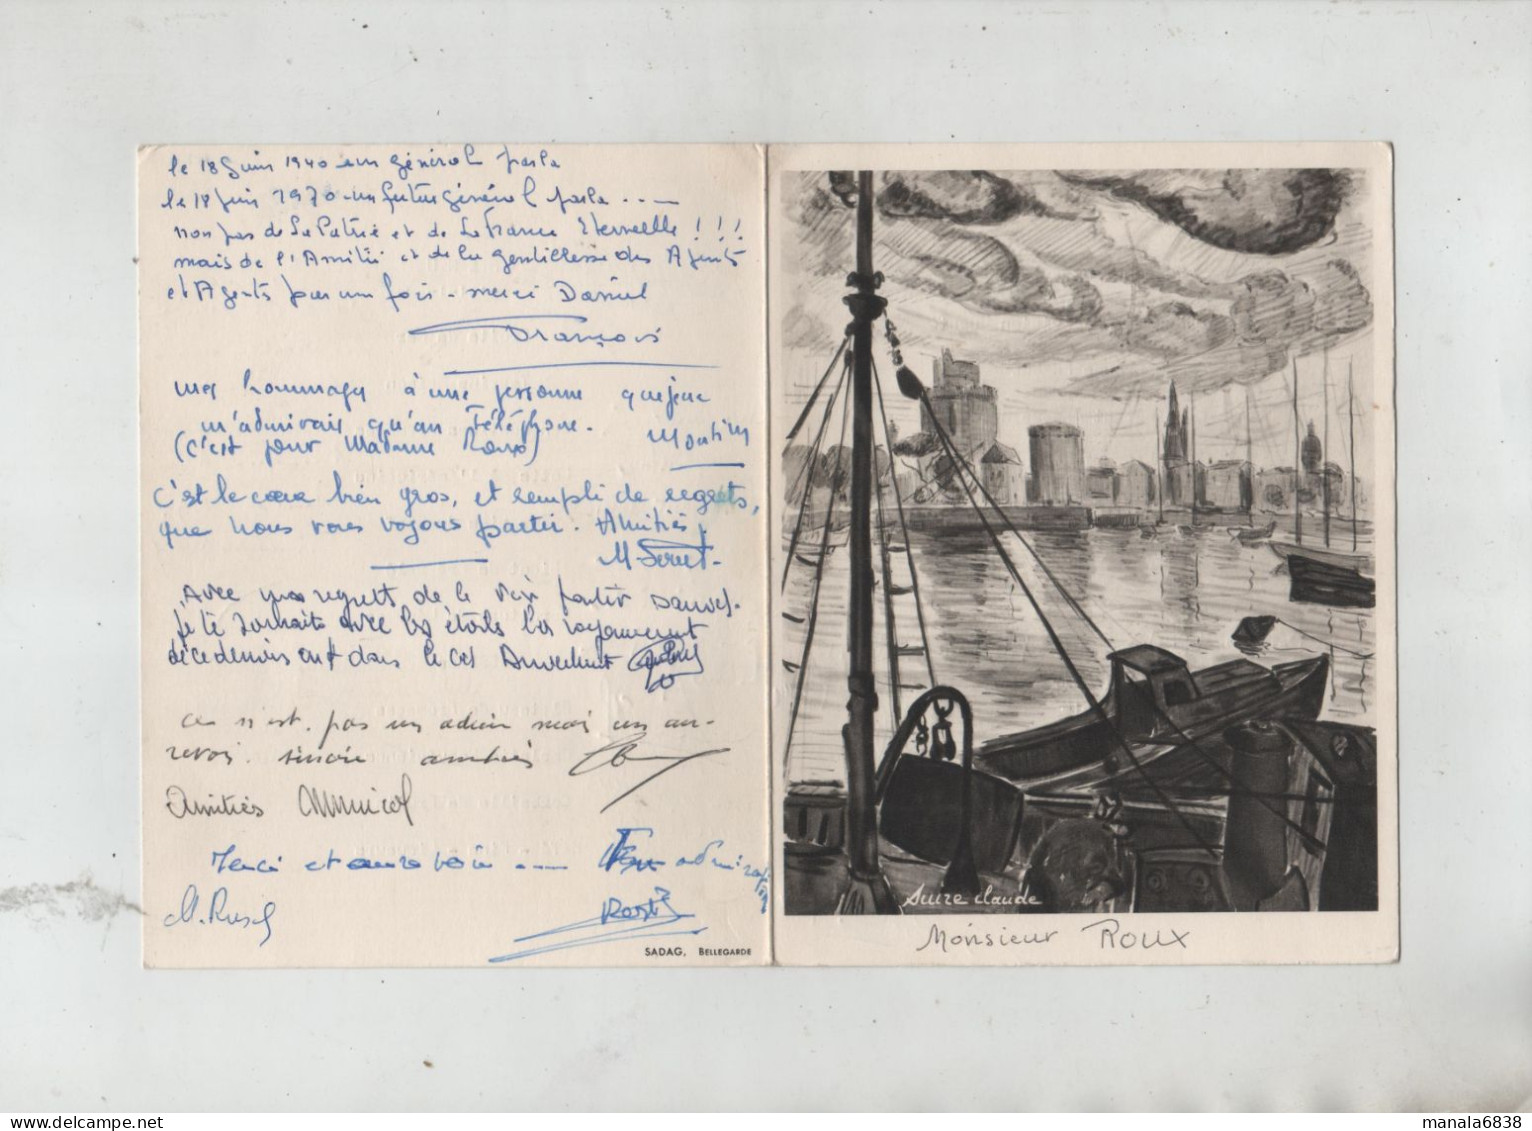 le 18 Juin 1940 un général parla
le 18 Juin 1970 un futur général parla . . —
non pas de La Patrie et de La France Eternelle ! ! !
mais de l'Amitié et de la gentillesse des Agents
et Agents par un fois - merci Daniel
François
mes hommages à une personne que je
m'admirais qu'au Téléphone.
(c'est pour Madame Roux)
C'est le cœur bien gros, et rempli de regrets,
que nous vous voyons partir. Amitiés,
Avec mes regrets de te voir partir
Je te souhaite avec les étoiles
dans le ciel
ce n'est pas un adieu mais un au-
revoir. sincère amitiés
Amitiés
Merci et au revoir ---
admiration
SADAG, BELLEGARDE
Suire claude
Monsieur ROUX
manala6838